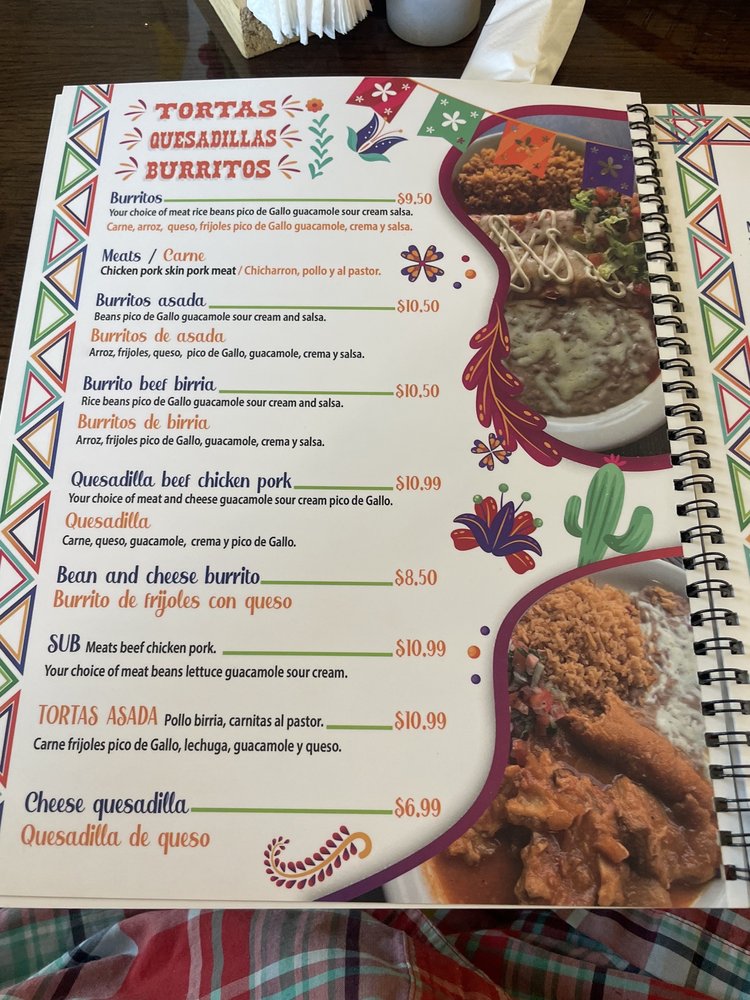 TORTAS
QUESADILLAS
BURRITOS
Burritos $9,50
Your choice of meat rice beans pico de Gallo guacamole sour cream salsa.
Carne, arroz, queso, frijoles pico de Gallo guacamole, crema y salsa.
Meats / Carne
Chicken pork skin pork meat / Chicharron, pollo y al pastor.
Burritos asada $10,50
Beans pico de Gallo guacamole sour cream and salsa.
Burritos de asada
Arroz, frijoles, queso, pico de Gallo, guacamole, crema y salsa.
Burrito beef birria $10,50
Rice beans pico de Gallo guacamole sour cream and salsa.
Burritos de birria
Arroz, frijoles pico de Gallo, guacamole, crema y salsa.
Quesadilla beef chicken pork $10,99
Your choice of meat and cheese guacamole sour cream pico de Gallo.
Quesadilla
Carne, queso, guacamole, crema y pico de Gallo.
Bean and cheese burrito $8,50
Burrito de frijoles con queso
SUB Meats beef chicken pork. $10,99
Your choice of meat beans lettuce guacamole sour cream.
TORTAS ASADA Pollo birria, carnitas al pastor. $10,99
Carne frijoles pico de Gallo, lechuga, guacamole y queso.
Cheese quesadilla $6,99
Quesadilla de queso